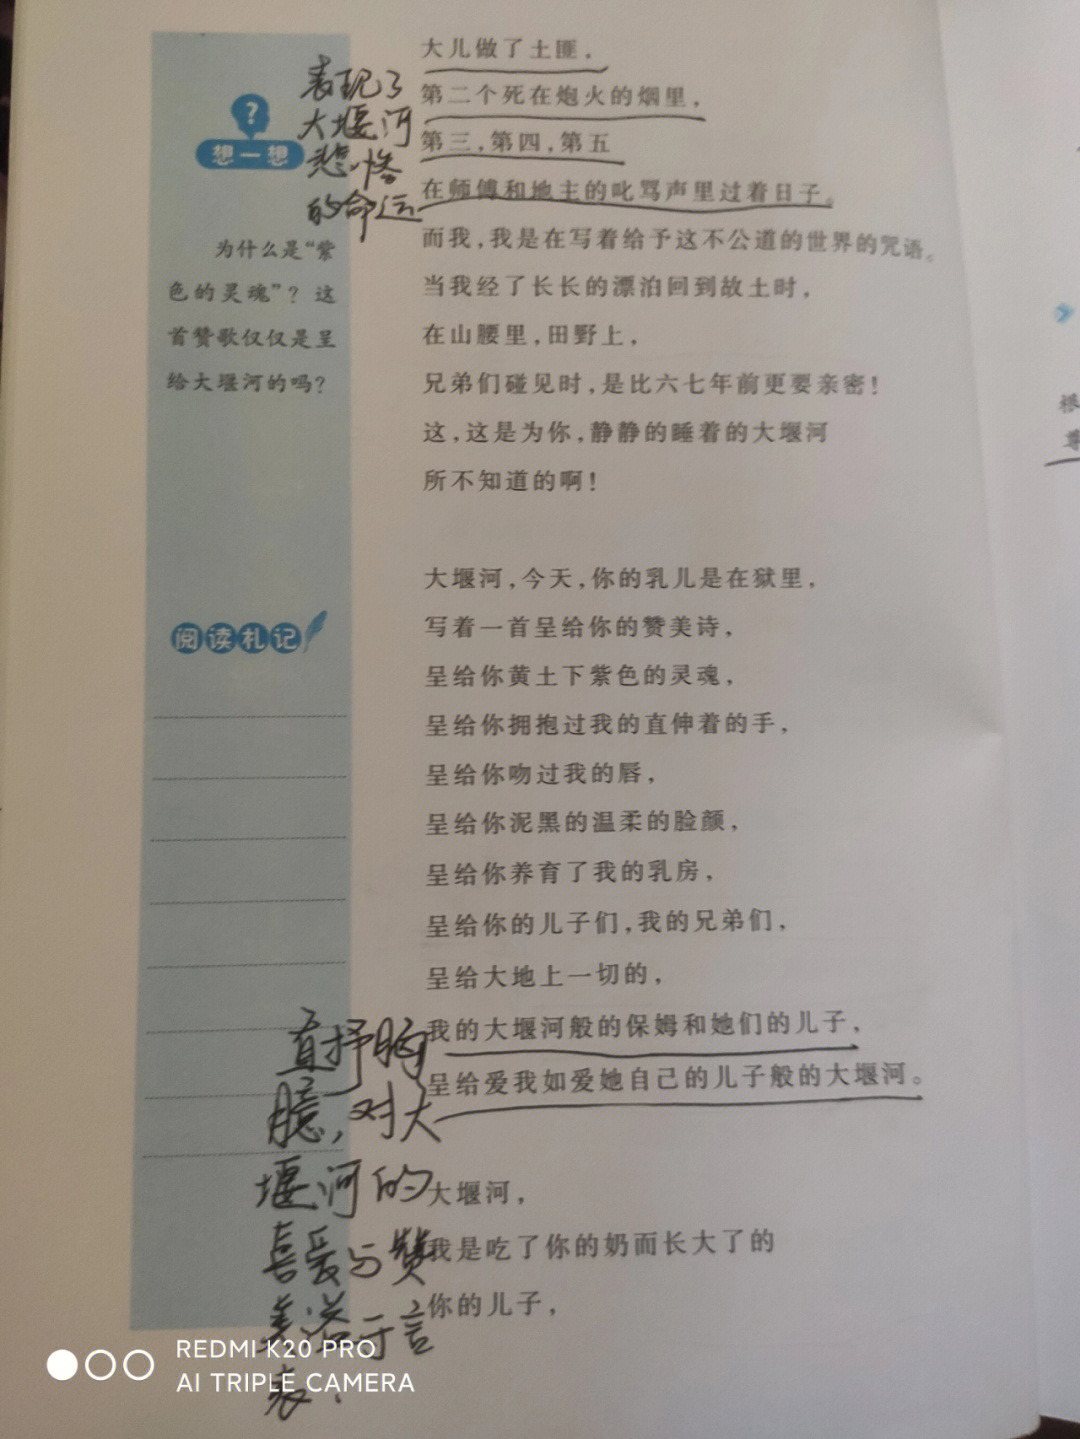 大儿做了土匪，
第二个死在炮火的烟里，
第三，第四，第五
在师傅和地主的叱骂声里过着日子。
而我，我是在写着给予这不公道的世界的咒语。
当我经了长长的漂泊回到故土时，
在山腰里，田野上，
兄弟们碰见时，是比六七年前更要亲密！
这，这是为你，静静的睡着的大堰河
所不知道的啊！
大堰河，今天，你的乳儿是在狱里，
写着一首呈给你的赞美诗，
呈给你黄土下紫色的灵魂，
呈给你拥抱过我的直伸着的手，
呈给你吻过我的唇，
呈给你泥黑的温柔的脸颜，
呈给你养育了我的乳房，
呈给你的儿子们，我的兄弟们，
呈给大地上一切的，
我的大堰河般的保姆和她们的儿子，
呈给爱我如爱她自己的儿子般的大堰河。
大堰河，
我是吃了你的奶而长大了的
你的儿子，
表现了
大堰河
悲惨
的命运
?
想一想
为什么是“紫
色的灵魂”？这
首赞歌仅仅是呈
给大堰河的吗？
阅读札记
直抒胸
臆，对大
堰河的
喜爱与赞
美溢于言
表．
根
尊
REDMI K20 PRO
AI TRIPLE CAMERA